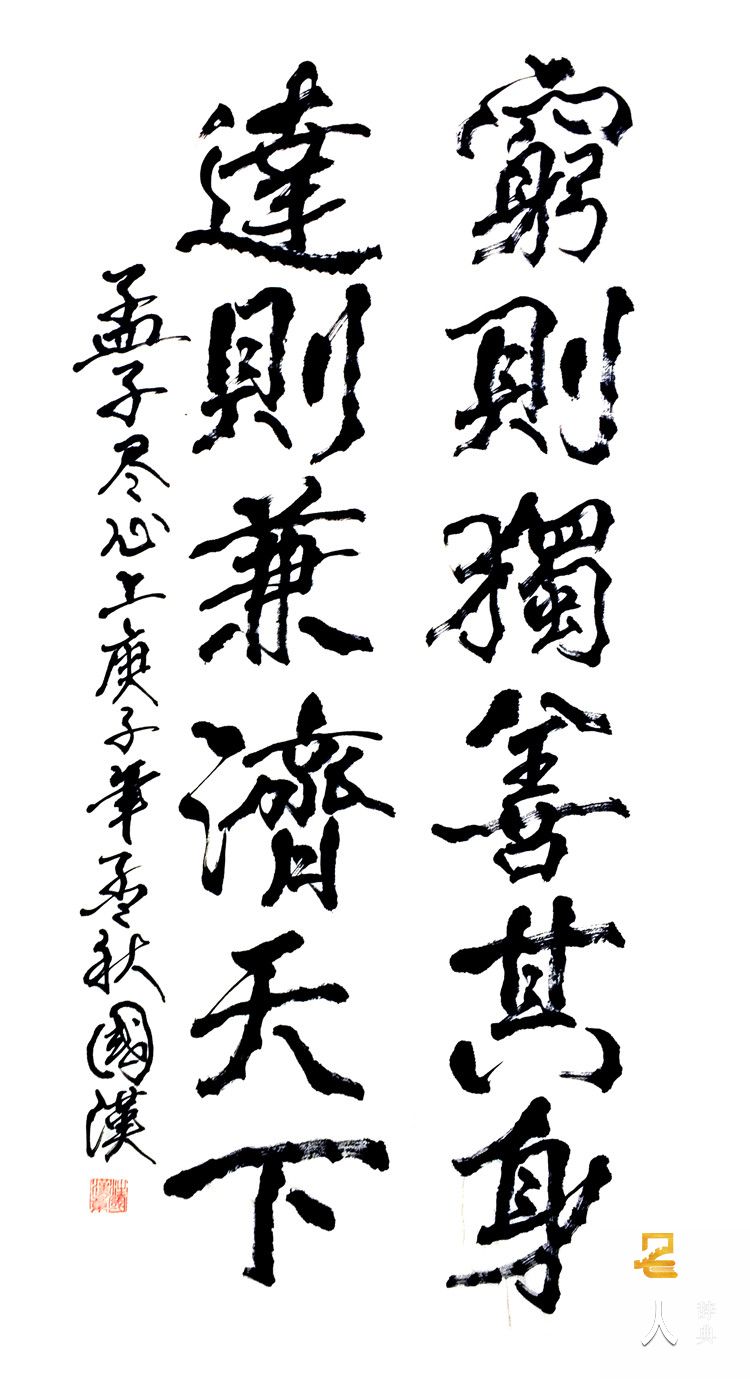 窮則獨善其身
達則兼濟天下
孟子尽心上庚子年孟秋國漢
名人
辞典